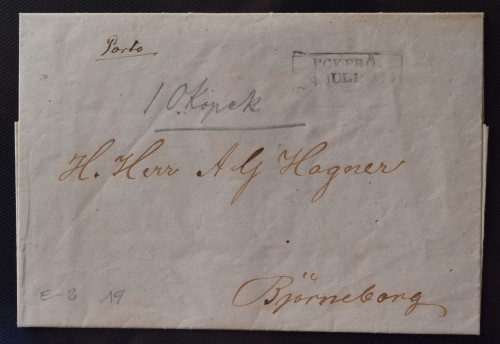 Porto
JULI
10 Kopek
H. Herr A G Hagner
Björneborg
E-8 19